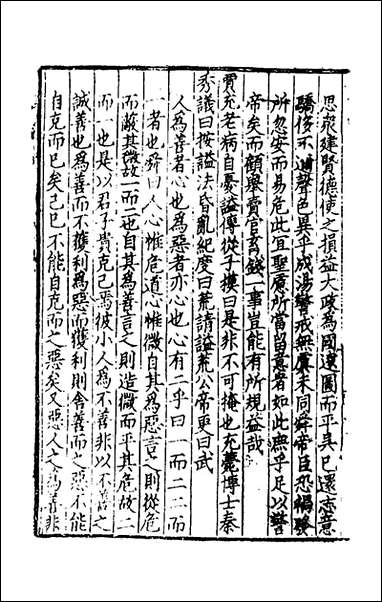 思廣建賢德使之損益大政為國遠圖而平吳已還志意
驕侈不邇聲色異乎成湯警戒無虞未同舜帝臣恐禍發
所忽安而易危此宜聖慮所當留意者如此庶乎足以警
帝矣而顧舉賣官錢一事豈能有所規益哉
賈充老病自憂謚傳從子模曰是非不可掩也充薨博士秦
秀議曰按謚法昏亂紀度曰荒請謚荒公帝更曰武
人為善者心也為惡者亦心也心有二乎曰一而二二而
一者也舜曰人心惟危道心惟微自其為惡言之則從危
而蔽其微故一而二也自其為善言之則造微而平其危故二
而一也是以君子貴克己焉彼小人為不善非以不善之
誠善也為善而不獲利為惡而獲利則舍善而之惡不能
自克而已矣己不能自克而之惡矣又惡人之為善非